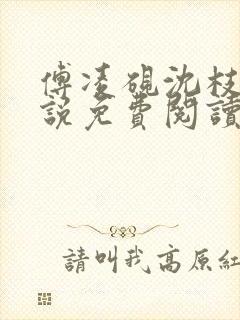 傅凌硯沈枝
說免費閱讀
請叫我高原紅